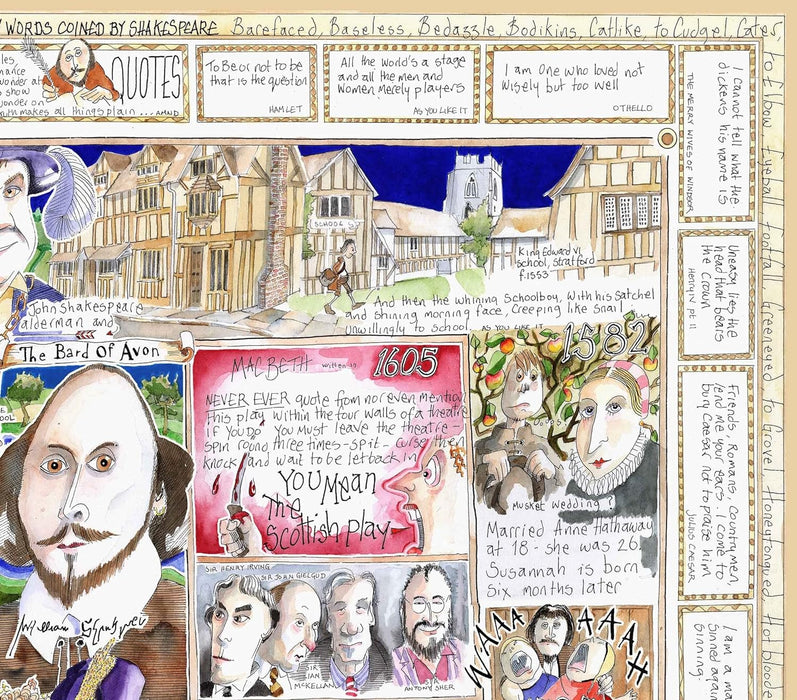 WORDS COINED BY SHAKESPEARE Barefaced, Baseless, Bedazzle, Bodikins, Catlike, to Cudgel, Cater,
to Elbow Eyeball Footfall Greeneyed to Grovel Honeytongued Hotblooded
wonder at
show
wonder on
makes all things plain ... AMND
QUOTES
To Be or not to be
that is the question
HAMLET
All the world's a stage
and all the men and
Women Merely players
AS YOU LIKE IT
I am One who loved not
Wisely but too well
OTHELLO
I cannot tell what the
dickens his name is
THE MERRY WIVES OF WINDSOR
Uneasy lies the
head that bears
the Crown
HENRY IV pt II
Friends, Romans, Countrymen,
lend me your ears. I come to
bury Caesar not to praise him
JULIUS CAESAR
I am a ma
Sinned again
Sinning
SCHOOL
King Edward VI
School, Stratford
f.1553
And then the whining Schoolboy, With his Satchel
and Shining morning face, Creeping like Snail
Unwillingly to School. AS YOU LIKE IT
John Shakespeare
alderman and
The Bard Of Avon
William
MACBETH Written in 1605
NEVER EVER quote from nor even mention
This play within the four walls of a theatre
IF YOU DO You Must leave the theatre -
spin round three times - Spit - Curse then
Knock and wait to be let back in
YOU MEAN
The
Scottish play
1582
MUSKET Wedding !
Married Anne Hathaway
at 18 - she was 26.
Susannah is born
Six months later
SIR HENRY IRVING
SIR JOHN GIELGUD
SIR
IAN
MCKELLAN
ANTONY SHER
WAAAA
AAAH